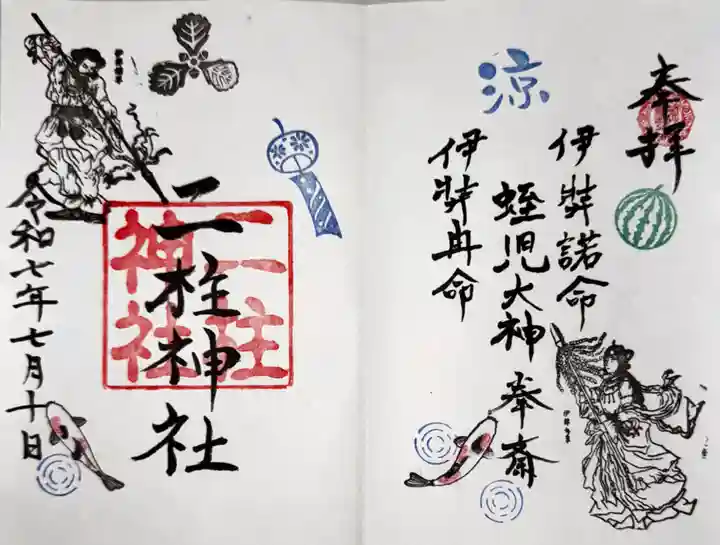 奉拝
涼
伊弉諾命
蛭児大神 奉斎
伊弉冉命
二柱神社
二柱
神社
令和七年七月十日